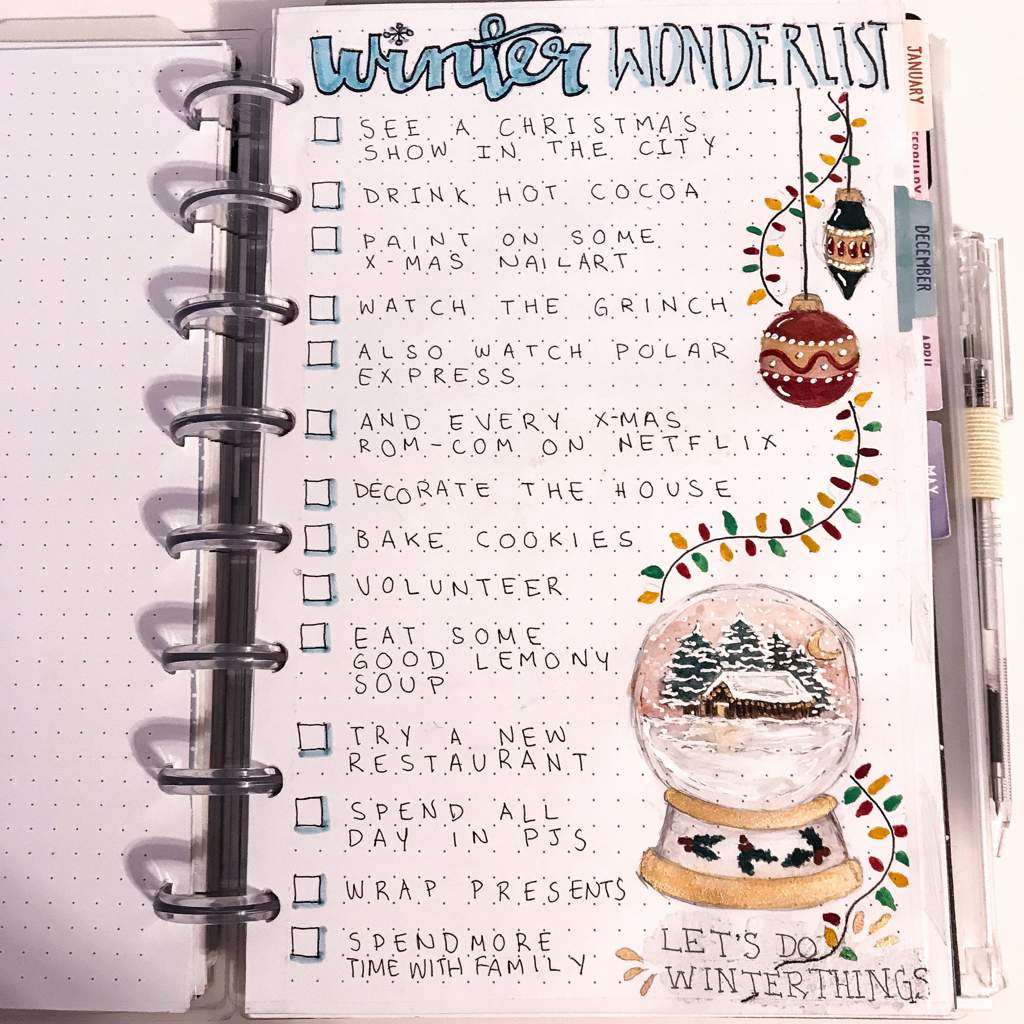 winter WONDERLIST
SEE A CHRISTMAS
SHOW IN THE CITY
DRINK HOT COCOA
PAINT ON SOME
X-MAS NAILART
WATCH THE GRINCH
ALSO WATCH POLAR
EXPRESS
AND EVERY X-MAS
ROM-COM ON NETFLIX
DECORATE THE HOUSE
BAKE COOKIES
VOLUNTEER
EAT SOME
GOOD LEMONY
SOUP
TRY A NEW
RESTAURANT
SPEND ALL
DAY IN PJS
WRAP PRESENTS
SPEND MORE
TIME WITH FAMILY
LET'S DO
WINTER THINGS
JANUARY
FEBRUARY
DECEMBER
APRIL
MAY